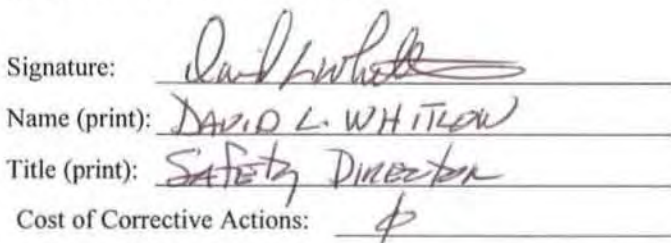 Signature: David L Whitlow
Name (print): DAVID L. WHITLOW
Title (print): SAFETY DIRECTOR
Cost of Corrective Actions: ϕ